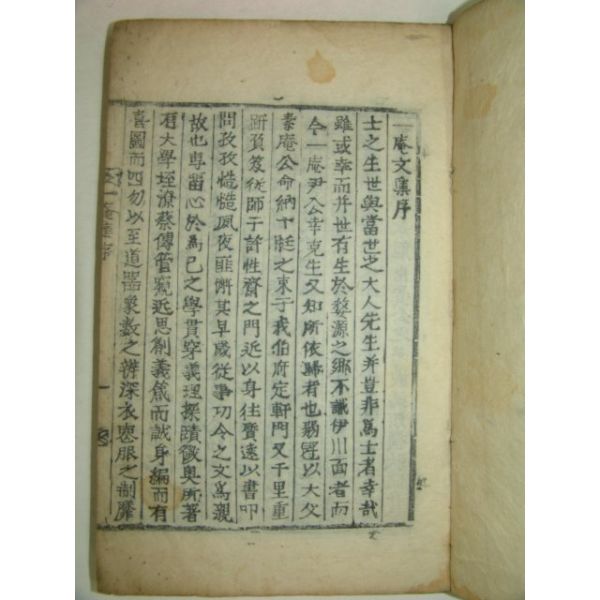 一庵文集序
士之生世與當世之大人先生并豈非爲士者幸哉
雖或幸而并世有生於婺源之鄕不識伊川面者而
今一庵尹公幸克生又知所依歸者也弱冠以大父
素庵公命納十脡之束于我伯府定軒門又千里重
趼負笈從師于許性齋之門近以身往質遠以書叩
問孜孜慥慥夙夜匪懈其早歲從事功令之文爲親
故也專留心於爲己之學貫穿義理探賾微奧所著
有大學 蔡傳管窺近思劄義篤而誠身編而有
喜圖而四勿以至道器象數之辨深衣 服之制靡
一庵 序